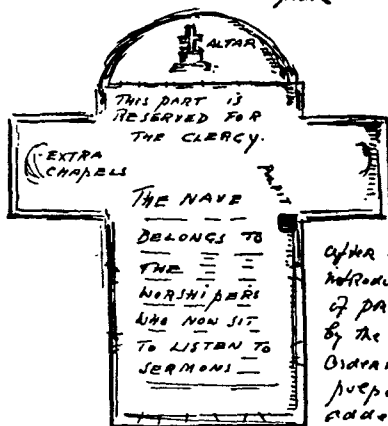 ALTAR
THIS PART IS
RESERVED FOR
THE CLERGY.
EXTRA
CHAPELS
PULPIT
THE NAVE
BELONGS TO
THE
WORSHIPERS
WHO NOW SIT
TO LISTEN TO
SERMONS
after
introdu
of pr
by the
Orders
pulp
adde